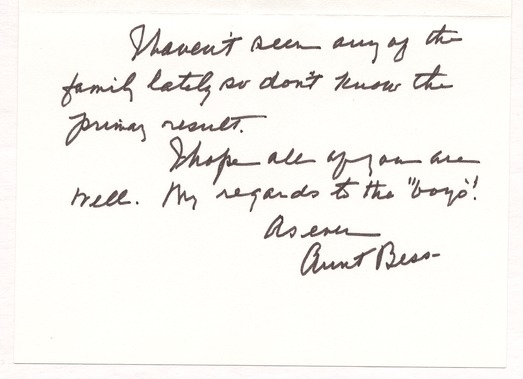 I haven't seen any of the
family lately so don't know the
primary result.
I hope all of you are
well. My regards to the "boys"!
As ever
Aunt Bess